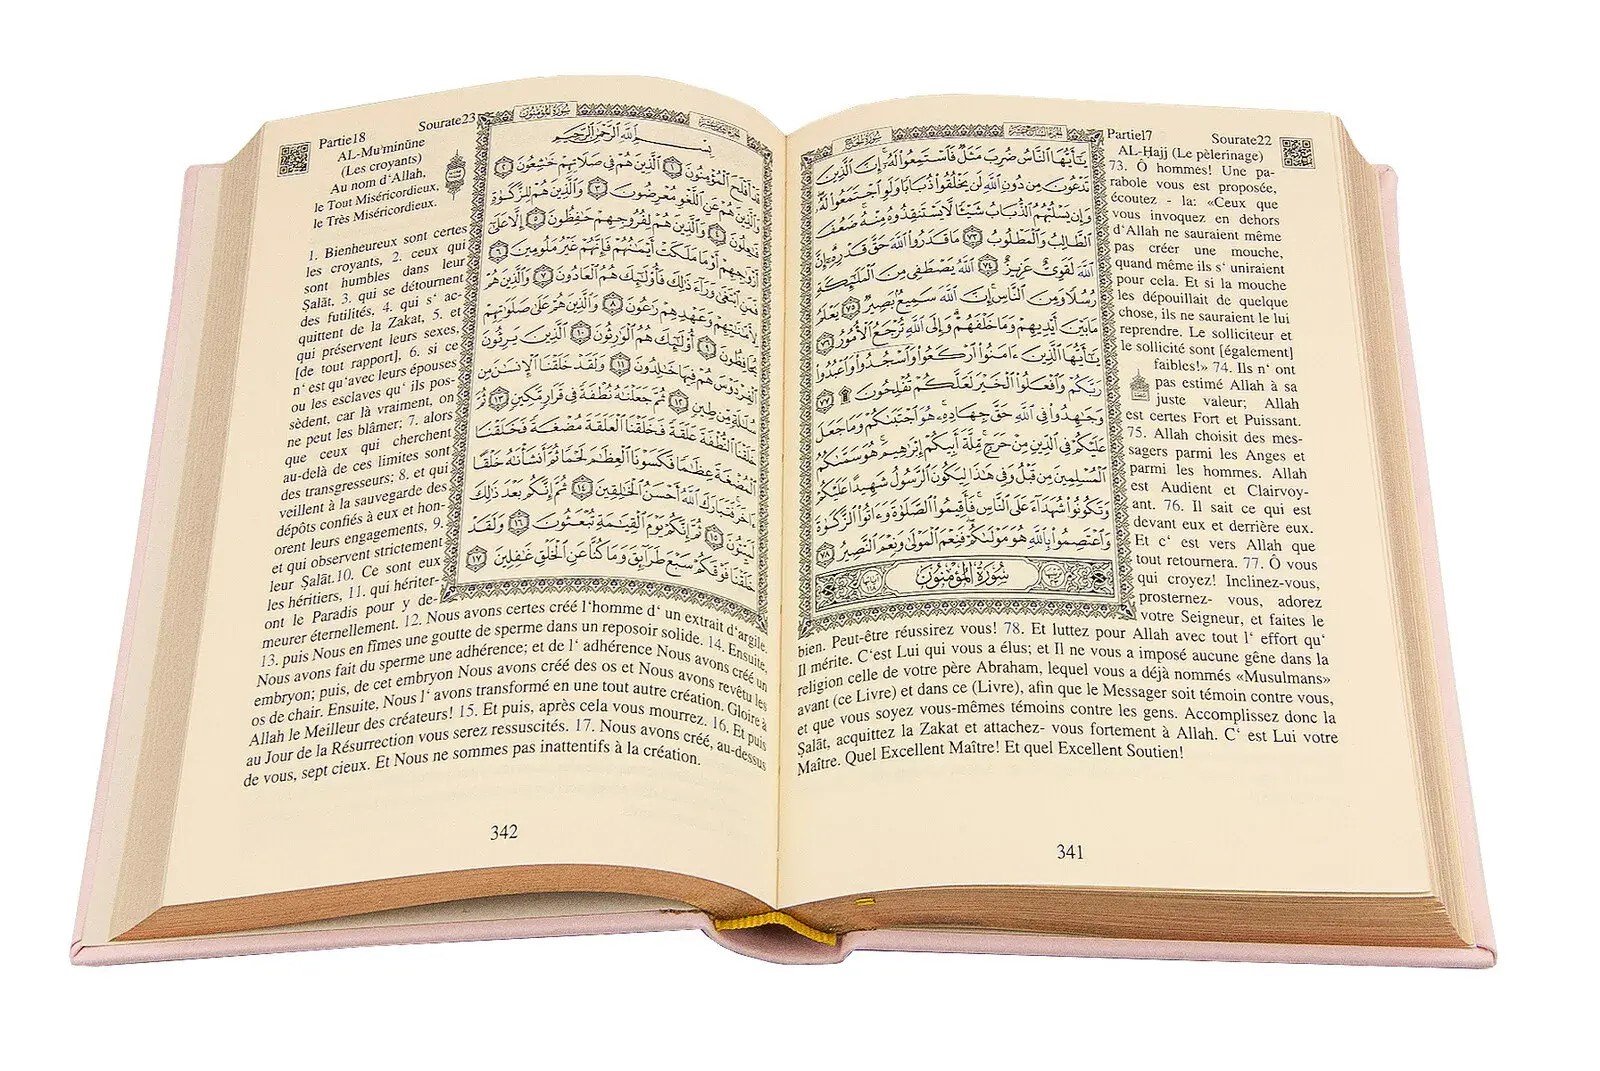 Partie17
Sourate22
سُورَةُ الحَجِّ
الجزء السابع عشر
AL-Ḥajj (Le pèlerinage)
يَٰٓأَيُّهَا ٱلنَّاسُ ضُرِبَ مَثَلٌ فَٱسْتَمِعُوا۟ لَهُۥٓ إِنَّ ٱلَّذِينَ
تَدْعُونَ مِن دُونِ ٱللَّهِ لَن يَخْلُقُوا۟ ذُبَابًا وَلَوِ ٱجْتَمَعُوا۟ لَهُۥ
وَإِن يَسْلُبْهُمُ ٱلذُّبَابُ شَيْـًٔا لَّا يَسْتَنقِذُوهُ مِنْهُ ضَعُفَ
ٱلطَّالِبُ وَٱلْمَطْلُوبُ ٧٣ مَا قَدَرُوا۟ ٱللَّهَ حَقَّ قَدْرِهِۦٓ إِنَّ
ٱللَّهَ لَقَوِىٌّ عَزِيزٌ ٧٤ ٱللَّهُ يَصْطَفِى مِنَ ٱلْمَلَٰٓئِكَةِ
رُسُلًا وَمِنَ ٱلنَّاسِ إِنَّ ٱللَّهَ سَمِيعٌۢ بَصِيرٌ ٧٥ يَعْلَمُ
مَا بَيْنَ أَيْدِيهِمْ وَمَا خَلْفَهُمْ وَإِلَى ٱللَّهِ تُرْجَعُ ٱلْأُمُورُ ٧٦
يَٰٓأَيُّهَا ٱلَّذِينَ ءَامَنُوا۟ ٱرْكَعُوا۟ وَٱسْجُدُوا۟ وَٱعْبُدُوا۟
رَبَّكُمْ وَٱفْعَلُوا۟ ٱلْخَيْرَ لَعَلَّكُمْ تُفْلِحُونَ ۩ ٧٧
وَجَٰهِدُوا۟ فِى ٱللَّهِ حَقَّ جِهَادِهِۦ هُوَ ٱجْتَبَىٰكُمْ وَمَا جَعَلَ
عَلَيْكُمْ فِى ٱلدِّينِ مِنْ حَرَجٍ مِّلَّةَ أَبِيكُمْ إِبْرَٰهِيمَ هُوَ سَمَّىٰكُمُ
ٱلْمُسْلِمِينَ مِن قَبْلُ وَفِى هَٰذَا لِيَكُونَ ٱلرَّسُولُ شَهِيدًا عَلَيْكُمْ
وَتَكُونُوا۟ شُهَدَآءَ عَلَى ٱلنَّاسِ فَأَقِيمُوا۟ ٱلصَّلَوٰةَ وَءَاتُوا۟ ٱلزَّكَوٰةَ
وَٱعْتَصِمُوا۟ بِٱللَّهِ هُوَ مَوْلَىٰكُمْ فَنِعْمَ ٱلْمَوْلَىٰ وَنِعْمَ ٱلنَّصِيرُ ٧٨
سُورَةُ المُؤْمِنُونَ
73. Ô hommes! Une pa-
rabole vous est proposée,
écoutez - la: «Ceux que
vous invoquez en dehors
d'Allah ne sauraient même
pas créer une mouche,
quand même ils s' uniraient
pour cela. Et si la mouche
les dépouillait de quelque
chose, ils ne sauraient le lui
reprendre. Le solliciteur et
le sollicité sont [également]
faibles!» 74. Ils n' ont
pas estimé Allah à sa
juste valeur; Allah
est certes Fort et Puissant.
75. Allah choisit des mes-
sagers parmi les Anges et
parmi les hommes. Allah
est Audient et Clairvoy-
ant. 76. Il sait ce qui est
devant eux et derrière eux.
Et c' est vers Allah que
tout retournera. 77. Ô vous
qui croyez! Inclinez-vous,
prosternez- vous, adorez
votre Seigneur, et faites le
bien. Peut-être réussirez vous! 78. Et luttez pour Allah avec tout l' effort qu'
Il mérite. C'est Lui qui vous a élus; et Il ne vous a imposé aucune gêne dans la
religion celle de votre père Abraham, lequel vous a déjà nommés «Musulmans»
avant (ce Livre) et dans ce (Livre), afin que le Messager soit témoin contre vous,
et que vous soyez vous-mêmes témoins contre les gens. Accomplissez donc la
Ṣalāt, acquittez la Zakat et attachez- vous fortement à Allah. C' est Lui votre
Maître. Quel Excellent Maître! Et quel Excellent Soutien!
341
Partie18
Sourate23
سُورَةُ المُؤْمِنُونَ
AL-Mu'minūne
(Les croyants)
Au nom d'Allah,
le Tout Miséricordieux,
le Très Miséricordieux.
بِسْمِ ٱللَّهِ ٱلرَّحْمَٰنِ ٱلرَّحِيمِ
قَدْ أَفْلَحَ ٱلْمُؤْمِنُونَ ١ ٱلَّذِينَ هُمْ فِى صَلَاتِهِمْ خَٰشِعُونَ ٢
وَٱلَّذِينَ هُمْ عَنِ ٱللَّغْوِ مُعْرِضُونَ ٣ وَٱلَّذِينَ هُمْ لِلزَّكَوٰةِ
فَٰعِلُونَ ٤ وَٱلَّذِينَ هُمْ لِفُرُوجِهِمْ حَٰفِظُونَ ٥ إِلَّا عَلَىٰٓ
أَزْوَٰجِهِمْ أَوْ مَا مَلَكَتْ أَيْمَٰنُهُمْ فَإِنَّهُمْ غَيْرُ مَلُومِينَ ٦
فَمَنِ ٱبْتَغَىٰ وَرَآءَ ذَٰلِكَ فَأُو۟لَٰٓئِكَ هُمُ ٱلْعَادُونَ ٧ وَٱلَّذِينَ هُمْ
لِأَمَٰنَٰتِهِمْ وَعَهْدِهِمْ رَٰعُونَ ٨ وَٱلَّذِينَ هُمْ عَلَىٰ صَلَوَٰتِهِمْ
يُحَافِظُونَ ٩ أُو۟لَٰٓئِكَ هُمُ ٱلْوَٰرِثُونَ ١٠ ٱلَّذِينَ يَرِثُونَ
ٱلْفِرْدَوْسَ هُمْ فِيهَا خَٰلِدُونَ ١١ وَلَقَدْ خَلَقْنَا ٱلْإِنسَٰنَ مِن
سُلَٰلَةٍ مِّن طِينٍ ١٢ ثُمَّ جَعَلْنَٰهُ نُطْفَةً فِى قَرَارٍ مَّكِينٍ ١٣ ثُمَّ
خَلَقْنَا ٱلنُّطْفَةَ عَلَقَةً فَخَلَقْنَا ٱلْعَلَقَةَ مُضْغَةً فَخَلَقْنَا
ٱلْمُضْغَةَ عِظَٰمًا فَكَسَوْنَا ٱلْعِظَٰمَ لَحْمًا ثُمَّ أَنشَأْنَٰهُ خَلْقًا
ءَاخَرَ فَتَبَارَكَ ٱللَّهُ أَحْسَنُ ٱلْخَٰلِقِينَ ١٤ ثُمَّ إِنَّكُم بَعْدَ ذَٰلِكَ
لَمَيِّتُونَ ١٥ ثُمَّ إِنَّكُمْ يَوْمَ ٱلْقِيَٰمَةِ تُبْعَثُونَ ١٦ وَلَقَدْ
خَلَقْنَا فَوْقَكُمْ سَبْعَ طَرَآئِقَ وَمَا كُنَّا عَنِ ٱلْخَلْقِ غَٰفِلِينَ ١٧
1. Bienheureux sont certes
les croyants, 2. ceux qui
sont humbles dans leur
Ṣalāt, 3. qui se détournent
des futilités, 4. qui s' ac-
quittent de la Zakat, 5. et
qui préservent leurs sexes,
[de tout rapport], 6. si ce
n' est qu'avec leurs épouses
ou les esclaves qu' ils pos-
sèdent, car là vraiment, on
ne peut les blâmer; 7. alors
que ceux qui cherchent
au-delà de ces limites sont
des transgresseurs; 8. et qui
veillent à la sauvegarde des
dépôts confiés à eux et hon-
orent leurs engagements, 9.
et qui observent strictement
leur Ṣalāt.10. Ce sont eux
les héritiers, 11. qui hériter-
ont le Paradis pour y de-
meurer éternellement. 12. Nous avons certes créé l'homme d' un extrait d'argile,
13. puis Nous en fîmes une goutte de sperme dans un reposoir solide. 14. Ensuite,
Nous avons fait du sperme une adhérence; et de l' adhérence Nous avons créé un
embryon; puis, de cet embryon Nous avons créé des os et Nous avons revêtu les
os de chair. Ensuite, Nous l' avons transformé en une tout autre création. Gloire à
Allah le Meilleur des créateurs! 15. Et puis, après cela vous mourrez. 16. Et puis
au Jour de la Résurrection vous serez ressuscités. 17. Nous avons créé, au-dessus
de vous, sept cieux. Et Nous ne sommes pas inattentifs à la création.
342